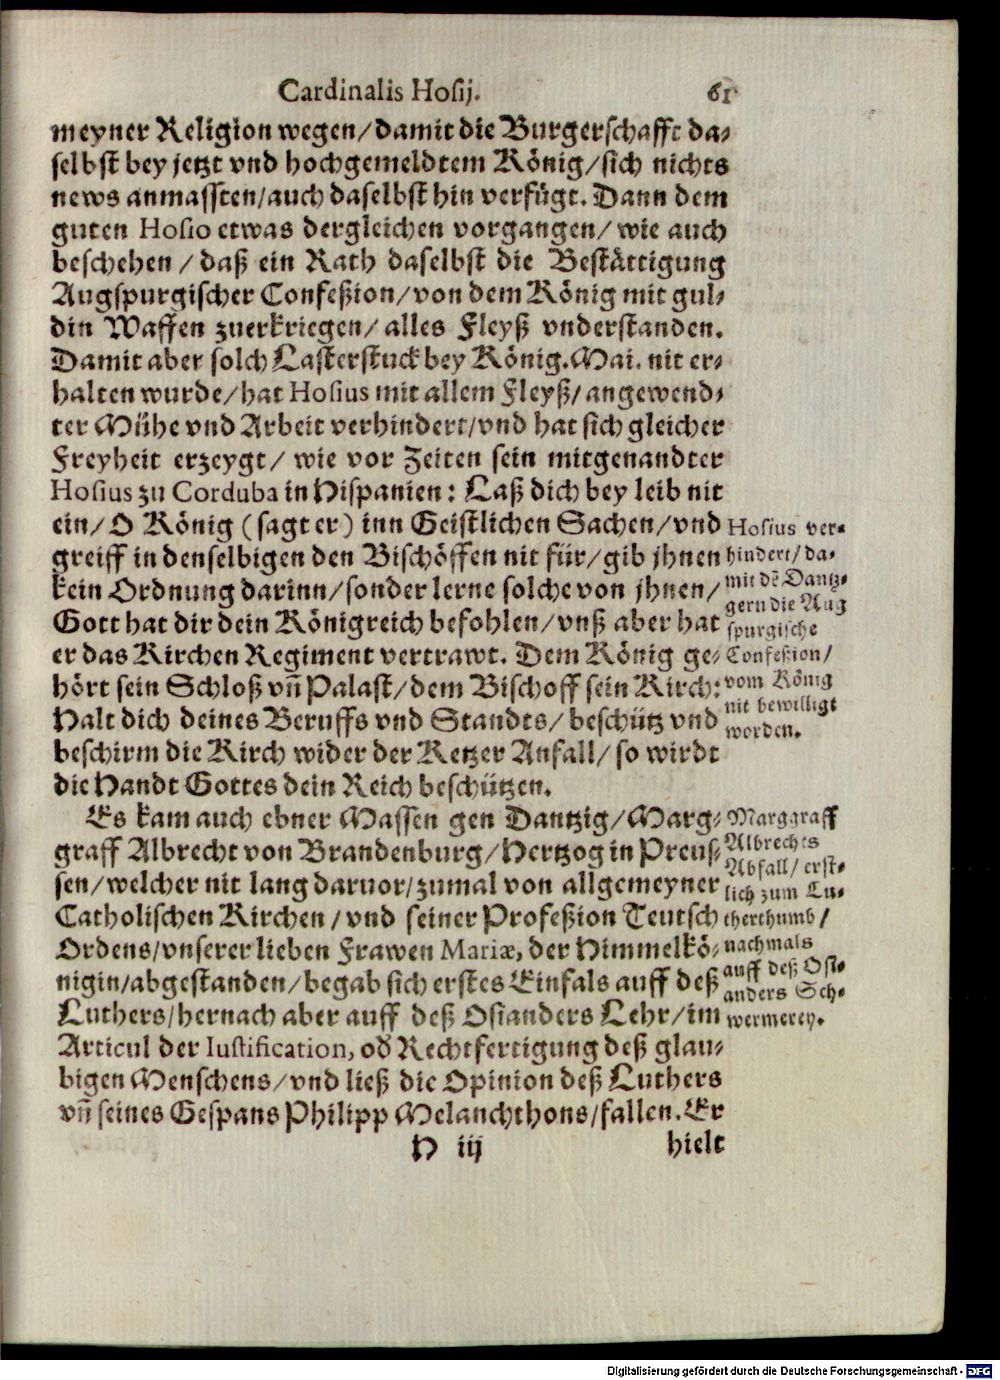 Cardinalis Hosij. 61
meyner Religion wegen/damit die Burgerschafft da-
selbst bey jetzt vnd hochgemeldtem König/sich nichts
news anmassten/auch daselbst hin verfügt. Dann dem
guten Hosio etwas dergleichen vorgangen/ wie auch
beschehen / daß ein Rath daselbst die Bestättigung
Augspurgischer Confeßion/von dem König mit gul-
din Waffen zuerkriegen/ alles Fleyß vnderstanden.
Damit aber solch Lasterstuck bey König. Mai. nit er-
halten wurde/hat Hosius mit allem Fleyß/angewend-
ter Mühe vnd Arbeit verhindert/vnd hat sich gleicher
Freyheit erzeygt/ wie vor Zeiten sein mitgenandter
Hosius zu Corduba in Hispanien: Laß dich bey leib nit
ein/ O König (sagt er) inn Geistlichen Sachen/vnd
greiff in denselbigen den Bischöffen nit für/gib jhnen
kein Ordnung darinn/sonder lerne solche von jhnen/
Gott hat dir dein Königreich befohlen/vnß aber hat
er das Kirchen Regiment vertrawt. Dem König ge-
hört sein Schloß vñ Palast/dem Bischoff sein Kirch:
Halt dich deines Beruffs vnd Standts/ beschütz vnd
beschirm die Kirch wider der Ketzer Anfall/ so wirdt
die Handt Gottes dein Reich beschützen.
Hosius ver-
hindert/da-
mit dẽ Dantz-
gern die Aug
spurgische
Confeßion/
vom König
nit bewilligt
worden.
Es kam auch ebner Massen gen Dantzig/Marg-
graff Albrecht von Brandenburg/Hertzog in Preus-
sen/welcher nit lang daruor/zumal von allgemeyner
Catholischen Kirchen/vnd seiner Profeßion Teutsch
Ordens/vnserer lieben Frawen Mariæ, der Himmelkö-
nigin/abgestanden/begab sich erstes Einfals auff deß
Luthers/hernach aber auff deß Osianders Lehr/im
Articul der Iustification, oď Rechtfertigung deß glau-
bigen Menschens/vnd ließ die Opinion deß Luthers
vñ seines Gespans Philipp Melanchthons/fallen. Er
Marggraff
Albrechts
Abfall/ erst-
lich zum Lu-
therthumb/
nachmals
auff deß Osi-
anders Sch-
wermerey.
H iij hielt
Digitalisierung gefördert durch die Deutsche Forschungsgemeinschaft - DFG